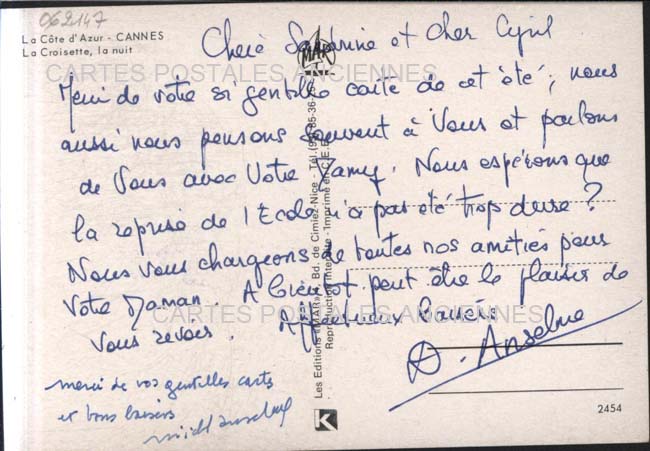 062147
La Côte d'Azur - CANNES
La Croisette, la nuit
Cherè Sandrine et Cher Cyril
MAR
CARTES POSTALES ANCIENNES
Merci de votre si gentille carte de cet été, nous
aussi nous pensons souvent à Vous et parlons
de Vous avec Votre Mamy. Nous espérons que
la reprise de l'Ecole n'a pas été trop dure ?
Nous vous chargeons de toutes nos amitiés pour
Votre Maman. A bientôt peut être le plaisir de
vous revoir. Affectueux baisers
CARTES POSTALES ANCIENNES
D. Anselme
merci de vos gentilles cartes
et bons baisers
Les Editions «MAR», Bd. de Cimiez Nice - Tél. 85-36-
Reproduction Interdite - Imprimé en C.E.E.
K
2454